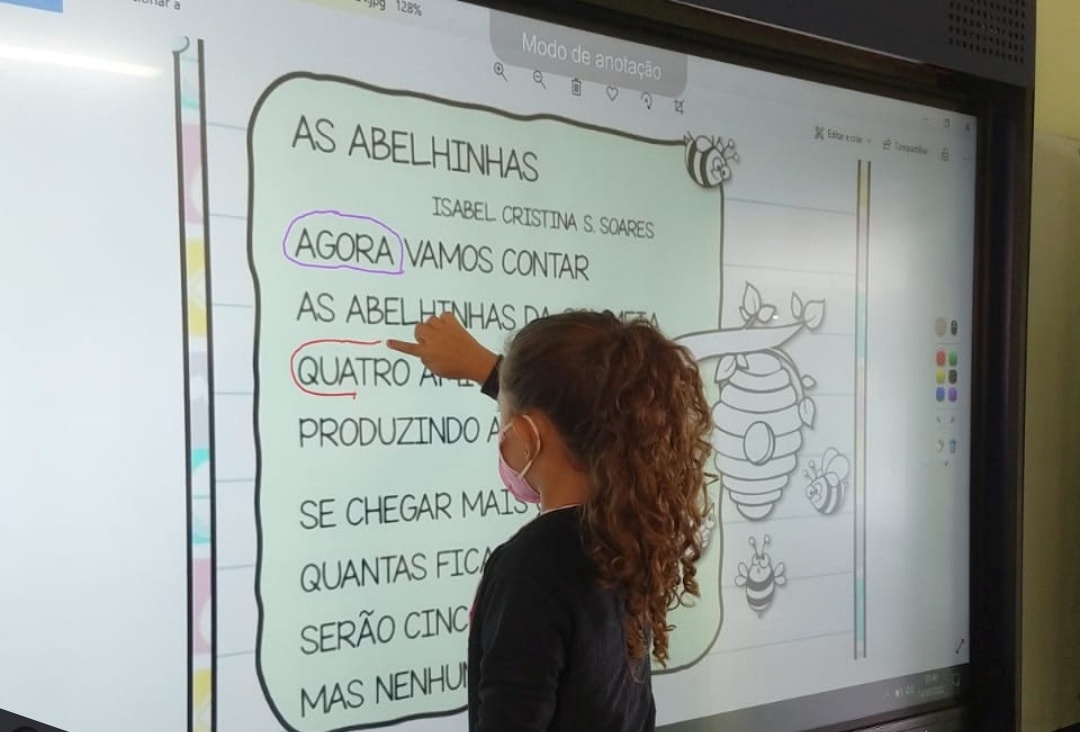 128%
Modo de anotação
Editar e criar
Compartilhar
AS ABELHINHAS
ISABEL CRISTINA S. SOARES
AGORA VAMOS CONTAR
AS ABELHINHAS DA
QUATRO
PRODUZINDO
SE CHEGAR MAIS
QUANTAS
SERÃO
MAS